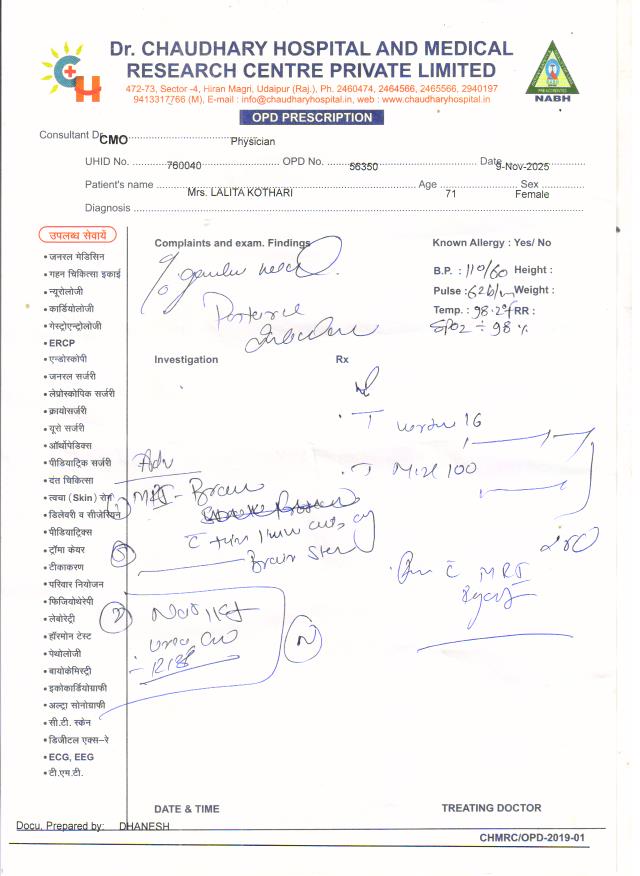 Dr. CHAUDHARY HOSPITAL AND MEDICAL
RESEARCH CENTRE PRIVATE LIMITED
472-73, Sector -4, Hiran Magri, Udaipur (Raj.), Ph. 2460474, 2464566, 2465566, 2940197
9413317766 (M), E-mail : info@chaudharyhospital.in, web : www.chaudharyhospital.in
NABH
OPD PRESCRIPTION
Consultant Dr. CMO
Physician
UHID No. 760040 OPD No. 56350 Date 9-Nov-2025
Patient's name Mrs. LALITA KOTHARI Age 71 Sex Female
Diagnosis
उपलब्ध सेवायें
• जनरल मेडिसिन
• गहन चिकित्सा इकाई
• न्यूरोलोजी
• कार्डियोलोजी
• गेस्ट्रोएन्ट्रोलोजी
• ERCP
• एन्डोस्कोपी
• जनरल सर्जरी
• लेप्रोस्कोपिक सर्जरी
• क्रायोसर्जरी
• यूरो सर्जरी
• ऑर्थोपेडिक्स
• पीडियाट्रिक सर्जरी
• दंत चिकित्सा
• त्वचा (Skin) रोग
• डिलेवरी व सीजेरियन
• पीडियाट्रिक्स
• ट्रॉमा केयर
• टीकाकरण
• परिवार नियोजन
• फिजियोथेरेपी
• लेबोरेट्री
• हॉरमोन टेस्ट
• पेथोलोजी
• बायोकेमिस्ट्री
• इकोकार्डियोग्राफी
• अल्ट्रा सोनोग्राफी
• सी.टी. स्केन
• डिजीटल एक्स–रे
• ECG, EEG
• टी.एम.टी.
Complaints and exam. Findings
Known Allergy : Yes/ No
B.P. : 110/60 Height :
Pulse : 62b/m Weight :
Temp. : 98.2°f RR :
SPO2 ÷ 98 %
Posterior
Investigation
Rx
T 16
T 100
Adv
MRI - Brain
thin 1mm cuts
Brain Stem
MRI
DATE & TIME
TREATING DOCTOR
Docu. Prepared by: DHANESH
CHMRC/OPD-2019-01